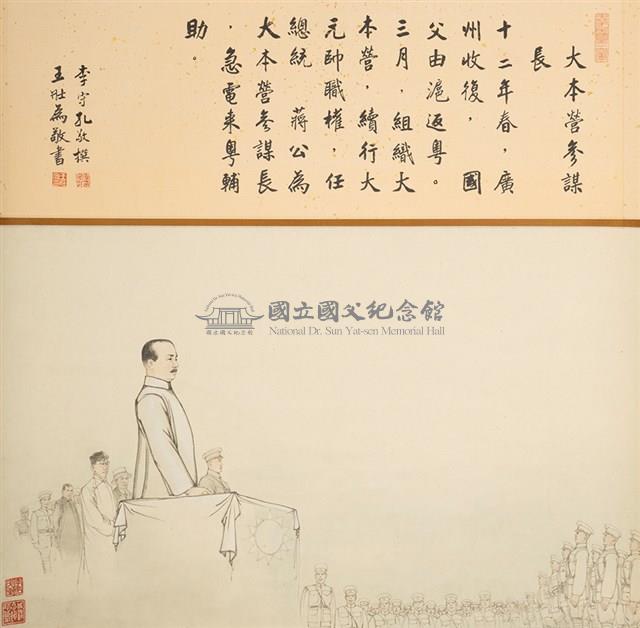 大本營參謀
長
十二年春，廣
州收復，　國
父由滬返粵。
三月，組織大
本營，續行大
元帥職權，任
總統　蔣公為
大本營參謀長
，急電來粵輔
助。
李守孔敬撰
王壯為敬書
國立國父紀念館
National Dr. Sun Yat-sen Memorial Hall
國立國父紀念館